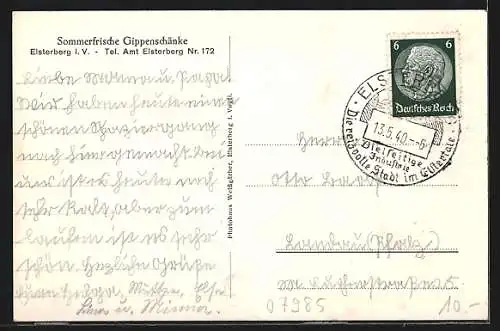 Sommerfrische Gippenschänke
Elsterberg i. V. - Tel. Amt Elsterberg Nr. 172
Liebe Mama u. Papa!
Wir haben heute einen
schönen Spaziergang
nach hier gemacht. Bei
uns ist es heute noch
sehr kalt, aber zum
laufen ist es sehr
schön. Herzliche Grüße
Eure Helga, Mutter, Else
u. Minna.
Photohaus Weißgärber, Elsterberg i. Vogtl.
6 6
Deutsches Reich
ELSTERBERG
13.5.40
Vielseitige
Industrie
Die reizvolle Stadt im Elstertale
Herrn
Otto
Landau (Pfalz)
07985
10.-